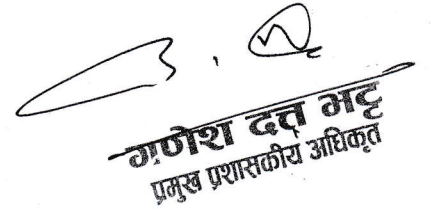 गणेश दत्त भट्ट
प्रमुख प्रशासकीय अधिकृत